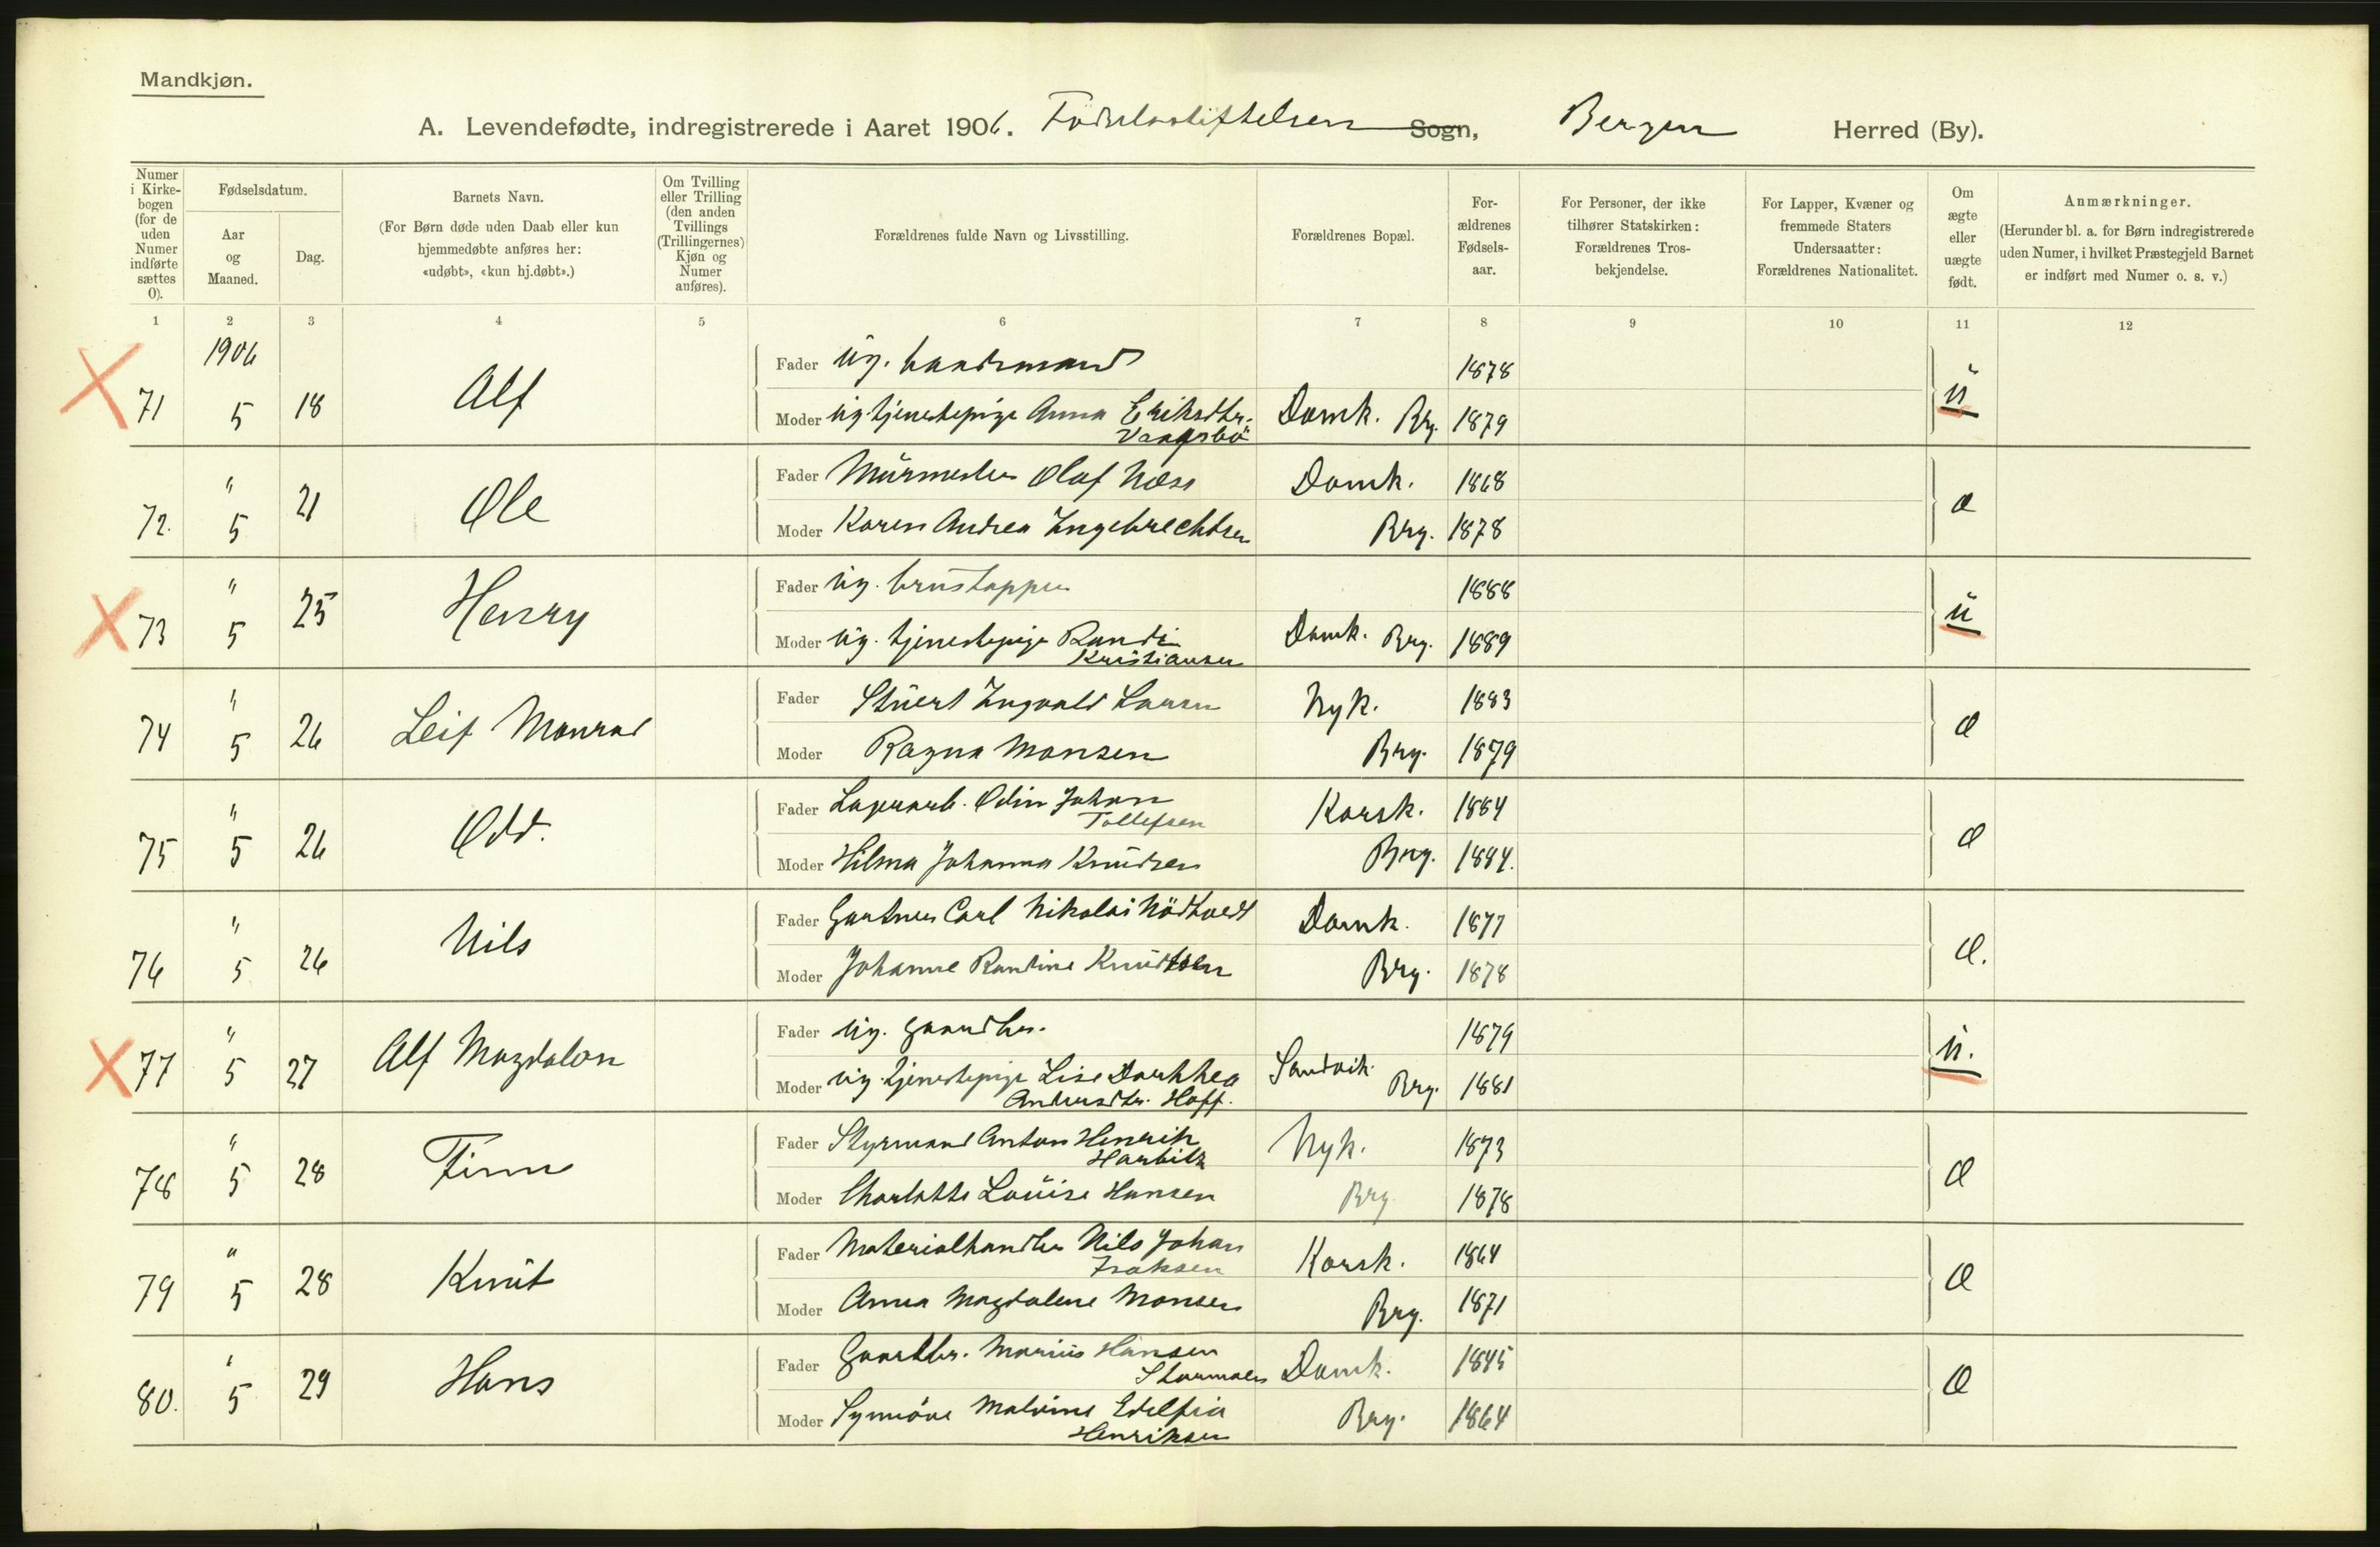 Mandkjøn.
A. Levendefødte, indregistrerede i Aaret 1906. Födselsstiftelsen Sogn, Bergen Herred (By).
Numer i Kirkebogen (for de uden Numer indførte sættes 0).
Fødselsdatum.
Aar og Maaned.
Dag.
Barnets Navn.
(For Børn døde uden Daab eller kun hjemmedøbte anføres her: «udøbt», «kun hj.døbt».)
Om Tvilling eller Trilling (den anden Tvillings (Trillingernes) Kjøn og Numer anføres).
Forældrenes fulde Navn og Livsstilling.
Forældrenes Bopæl.
Forældrenes Fødselsaar.
For Personer, der ikke tilhører Statskirken: Forældrenes Trosbekjendelse.
For Lapper, Kvæner og fremmede Staters Undersaatter: Forældrenes Nationalitet.
Om ægte eller uægte født.
Anmærkninger.
(Herunder bl. a. for Børn indregistrerede uden Numer, i hvilket Præstegjeld Barnet er indført med Numer o. s. v.)
1 2 3 4 5 6 7 8 9 10 11 12
1906
71 5 18 Alf
Fader ug. 1878
Moder ug. tjenestepige Anna Eriksdtr. Domk. Brg. 1879 u
Vaagsbö
72. " 5 21 Ole
Fader Murmester Olaf Næss Domk. 1868
Moder Karen Andrea Ingebrechtsen Brg. 1878 æ
73 " 5 25 Henry
Fader ug. 1888
Moder ug. tjenestepige Randi Domk. Brg. 1889 u
Kristiansen
74 " 5 26 Leif Monrad
Fader Stuert Ingvald Larsen Nyk. 1883
Moder Ragna Monsen Brg. 1879 æ
75 " 5 26 Odd.
Fader Lagerarb. Odin Johan Korsk. 1884
Tollefsen
Moder Hilma Johanna Knudsen Brg. 1884. æ
76 " 5 26 Nils
Fader Gartner Carl Nikolai Nödtvedt Domk. 1877
Moder Johanne Randine Knudtsen Brg. 1878 æ.
77 " 5 27 Alf Magdalon
Fader ug. 1879
Moder ug. tjenestepige Lise Dorthea Sandvik. Brg. 1881 u.
Andersdtr. Hopp.
78 " 5 28 Finn
Fader Styrmand Anton Henrik Nyk. 1873
Harbitz
Moder Charlotte Louise Hansen Brg. 1878 æ
79 " 5 28 Knut
Fader Materialhandler Nils Johan Korsk. 1864
Isaksen
Moder Anna Magdalene Monsen Brg. 1871 æ
80. " 5 29 Hans
Fader Marius Hansen Domk. 1845
Moder Synnöve Malvine Edelfia Brg. 1864 æ
Henriksen